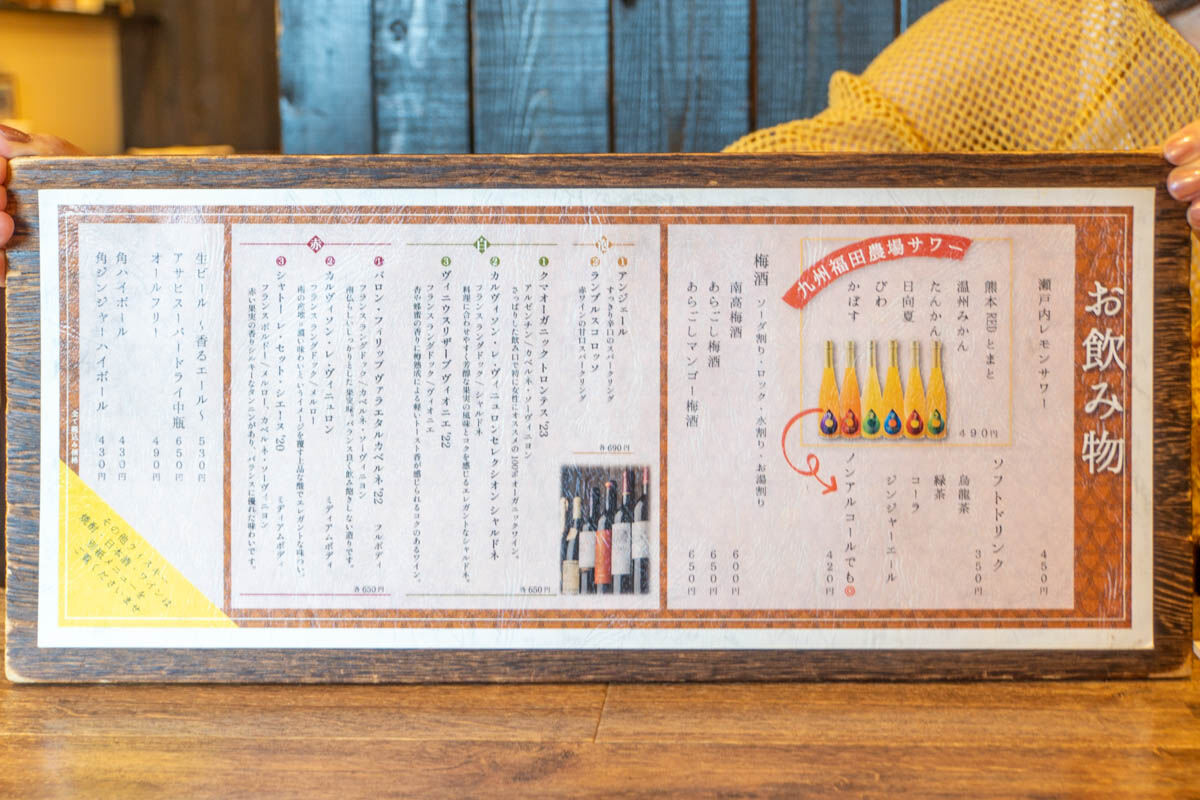 お飲み物
瀬戸内レモンサワー 450円
九州福田農場サワー
熊本REDとまと
温州みかん
たんかん
日向夏
びわ
かぼす
490円
ノンアルコールでも◎ 420円
ソフトドリンク 350円
烏龍茶
緑茶
コーラ
ジンジャーエール
梅酒 ソーダ割り・ロック・水割り・お湯割り
南高梅酒 600円
あらごし梅酒 650円
あらごしマンゴー梅酒 650円
泡
①アンジェール
すっきり辛口のスパークリング
②ランブルスコ ロッソ
赤ワインの甘口スパークリング
各690円
白
①クマオーガニック トロンテス '23
アルゼンチン/カベルネ・ソーヴィニヨン
さっぱりした飲み口で特に女性にオススメの100%オーガニックワイン。
②カルヴィソン・レ・ヴィニュロンセレクシオン シャルドネ
フランス ラングドック/シャルドネ
料理に合わせやすく芳醇な果実の風味とコクを感じるエレガントなシャルドネ。
③ヴィニウスリザーブ ヴィオニエ '22
フランス ラングドック/ヴィオニエ
杏や蜂蜜の香りに樽熟成による軽いトースト香が感じられるコクのあるワイン。
各650円
赤
①バロン・フィリップ ヴァラエタルカベルネ '22 フルボディ
フランス ラングドック/カベルネ・ソーヴィニヨン
南仏らしいしっかりとした果実味。バランス良く飲み飽きしない造りです。
②カルヴィソン・レ・ヴィニュロン ミディアムボディ
フランス ラングドック/メルロー
南の産地＝濃い味わいというイメージを覆す上品な酸でエレガントな味わい。
③シャトー・レ・セット・シエーヌ '20 ミディアムボディ
フランス ボルドー/メルロー、カベルネ・ソーヴィニヨン
赤い果実の香りシルキーなタンニンがあり、バランスに優れた味わいです。
各650円
生ビール ～香るエール～ 530円
アサヒスーパードライ中瓶 650円
オールフリー 490円
角ハイボール 430円
角ジンジャーハイボール 430円
全て税込み価格
その他ウイスキー
焼酎・日本酒・ワインは
別紙メニューを
ご覧くださいませ